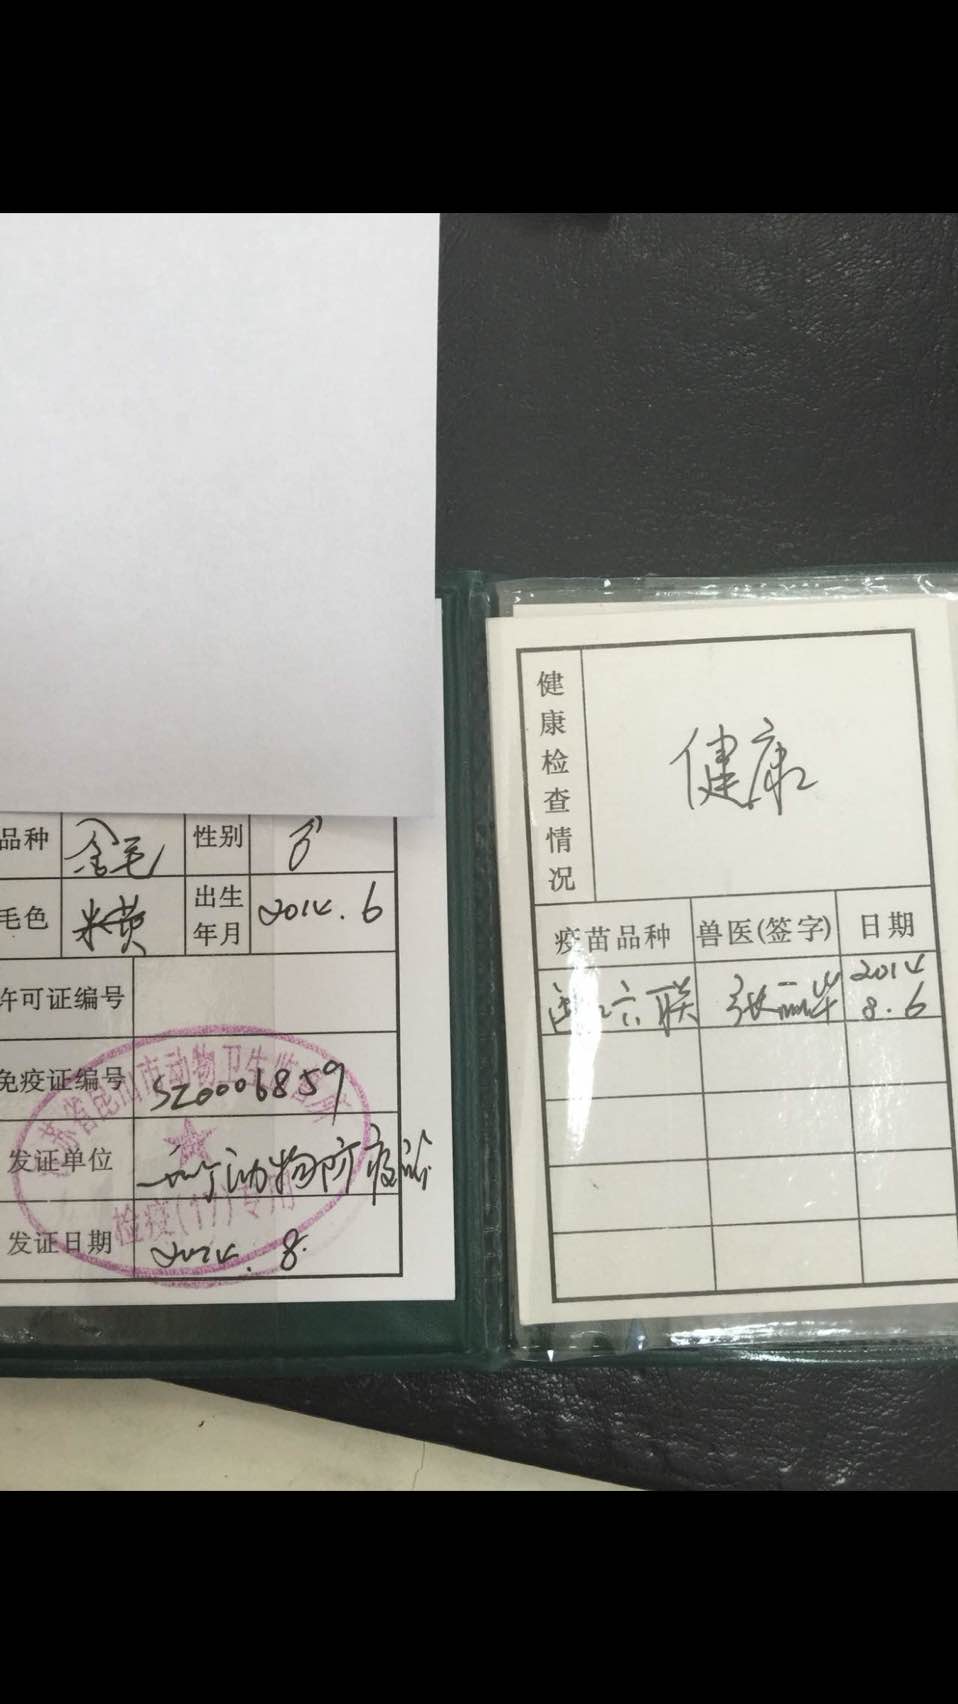 品种 金毛 性别 ♂
毛色 米黄 出生年月 2014.6
许可证编号
免疫证编号 SZ0006859
发证单位 动物防疫
发证日期 2014.8.
江苏省昆山市动物卫生监督所
检疫(17)专用
健康检查情况 健康
疫苗品种 兽医(签字) 日期
六联 张丽华 2014
8.6